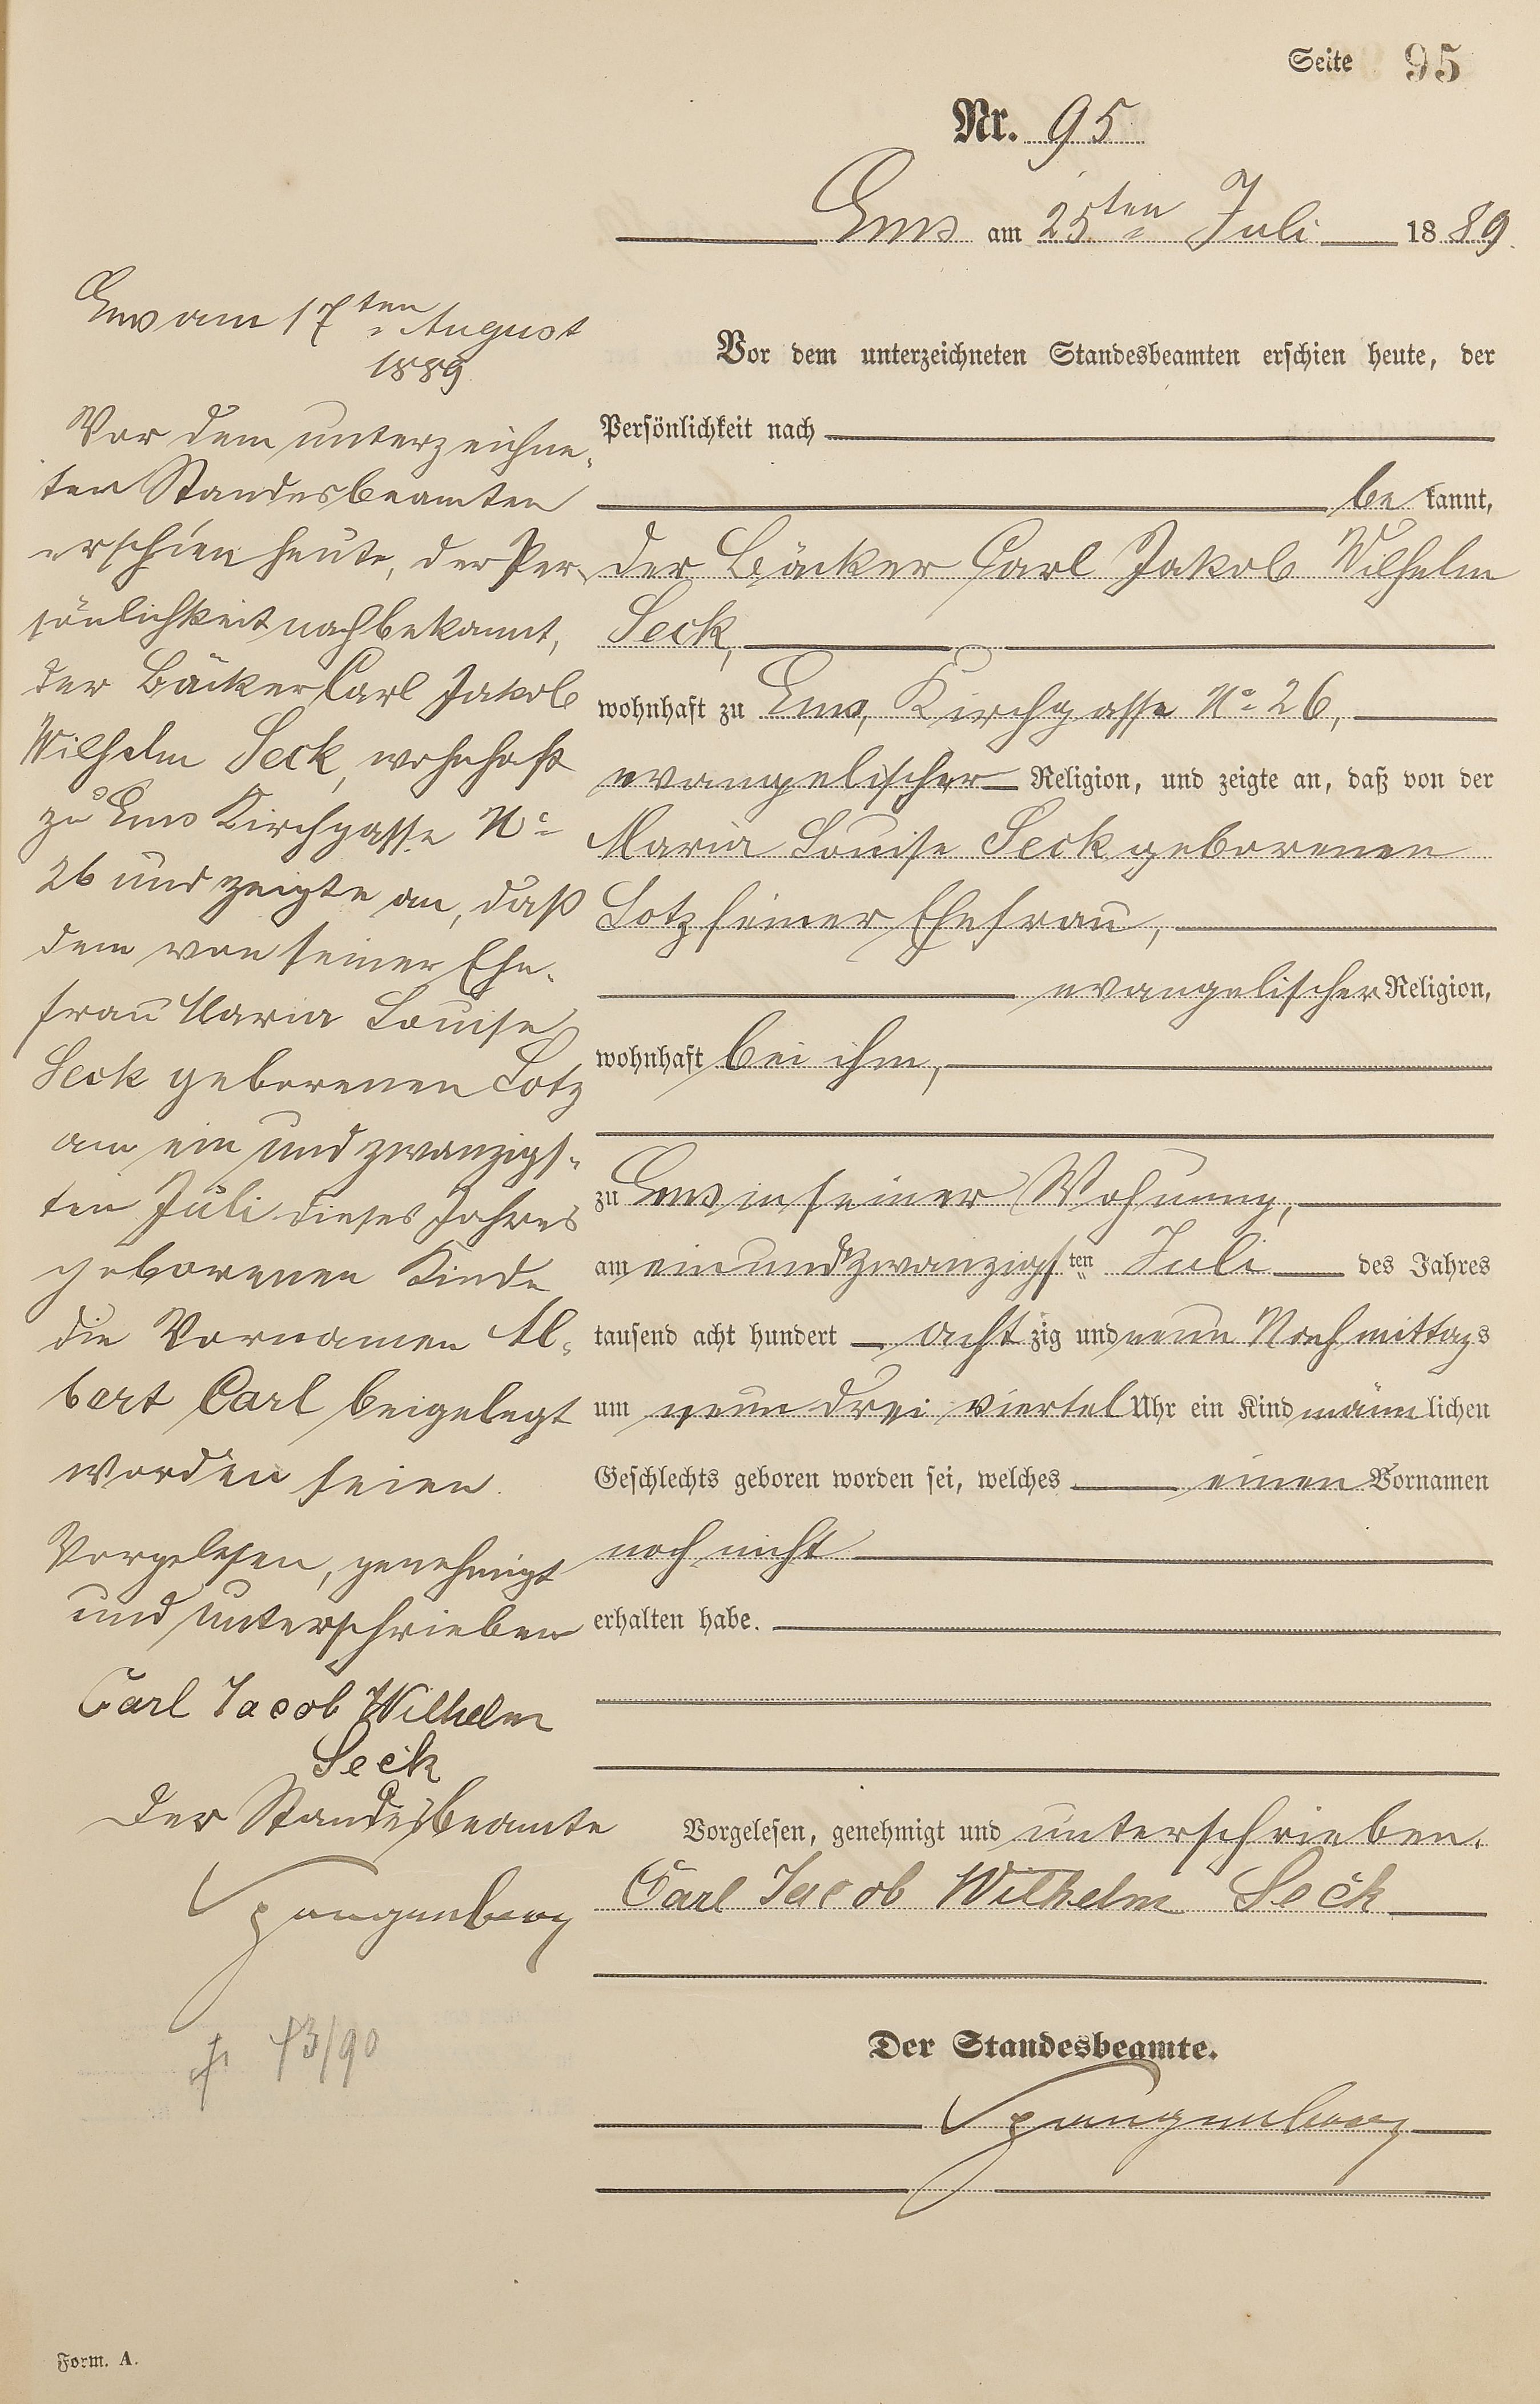 Seite 95
Nr. 95
Ems am 25ten Juli 1889.
Vor dem unterzeichneten Standesbeamten erschien heute, der
Persönlichkeit nach
be kannt,
der Bäcker Carl Jakob Wilhelm
Seck,
wohnhaft zu Ems, Kirchgasse No 26,
evangelischer Religion, und zeigte an, daß von der
Maria Louise Seck geborenen
Lotz seiner Ehefrau,
evangelischer Religion,
wohnhaft bei ihm,
zu Ems in seiner Wohnung,
am ein und zwanzigsten Juli des Jahres
tausend acht hundert acht zig und neun Nachmittags
um neun drei viertel Uhr ein Kind männlichen
Geschlechts geboren worden sei, welches einen Vornamen
noch nicht
erhalten habe.
Vorgelesen, genehmigt und unterschrieben.
Carl Jacob Wilhelm Seck
Der Standesbeamte.
Spangenberg
Ems am 17ten August
1889
Vor dem unterzeichne-
ten Standesbeamten
erschien heute, der Per-
sönlichkeit nach bekannt,
der Bäcker Carl Jakob
Wilhelm Seck, wohnhaft
zu Ems Kirchgasse No
26 und zeigte an, daß
dem von seiner Ehe-
frau Maria Louise
Seck geborenen Lotz
am ein und zwanzigs-
ten Juli dieses Jahres
geborenen Kinde
die Vornamen Al-
bert Carl beigelegt
worden seien.
Vorgelesen, genehmigt
und unterschrieben
Carl Jacob Wilhelm
Seck
Der Standesbeamte
Spangenberg
† 73/90
Form. A.